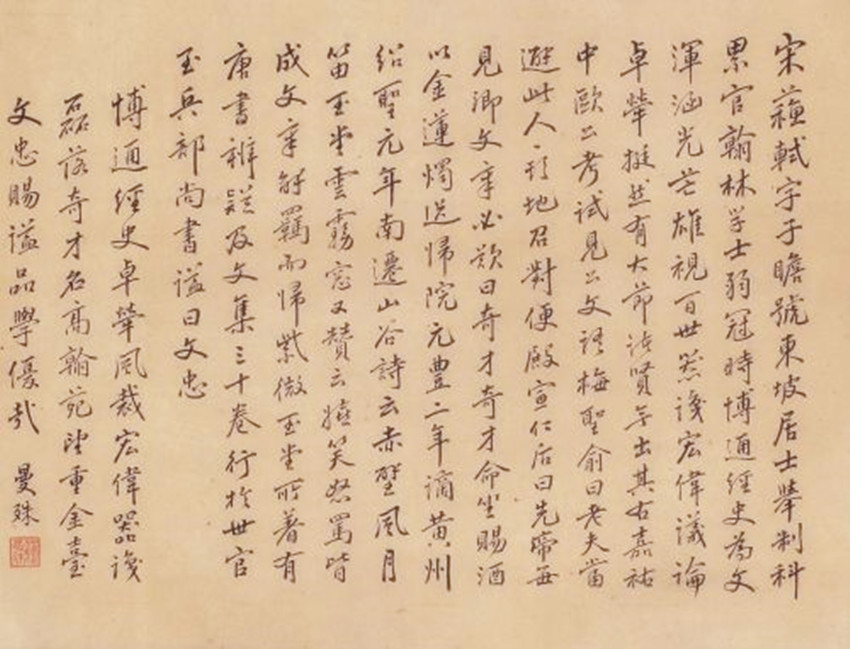 宋蘇軾字子瞻號東坡居士舉制科
累官翰林学士弱冠時博通經史為文
渾涵光芒雄視百世器識宏偉議論
卓犖挺然有大節諸賢無出其右嘉祐
中歐公考試見公文語梅聖俞曰老夫當
避此人一頭地召對便殿宣仁后曰先帝每
見卿文章必歎曰奇才奇才命坐賜酒
以金蓮燭送歸院元豊二年謫黃州
紹聖元年南遷山谷詩云赤壁風月
笛玉堂雲霧窓又贊云嬉笑怒罵皆
成文章解羈而歸紫微玉堂所著有
唐書辨疑及文集三十卷行於世官
至兵部尚書謚曰文忠
博通經史卓犖風裁宏偉器識
磊落奇才名高翰苑望重金臺
文忠賜謚品學優哉 曼殊